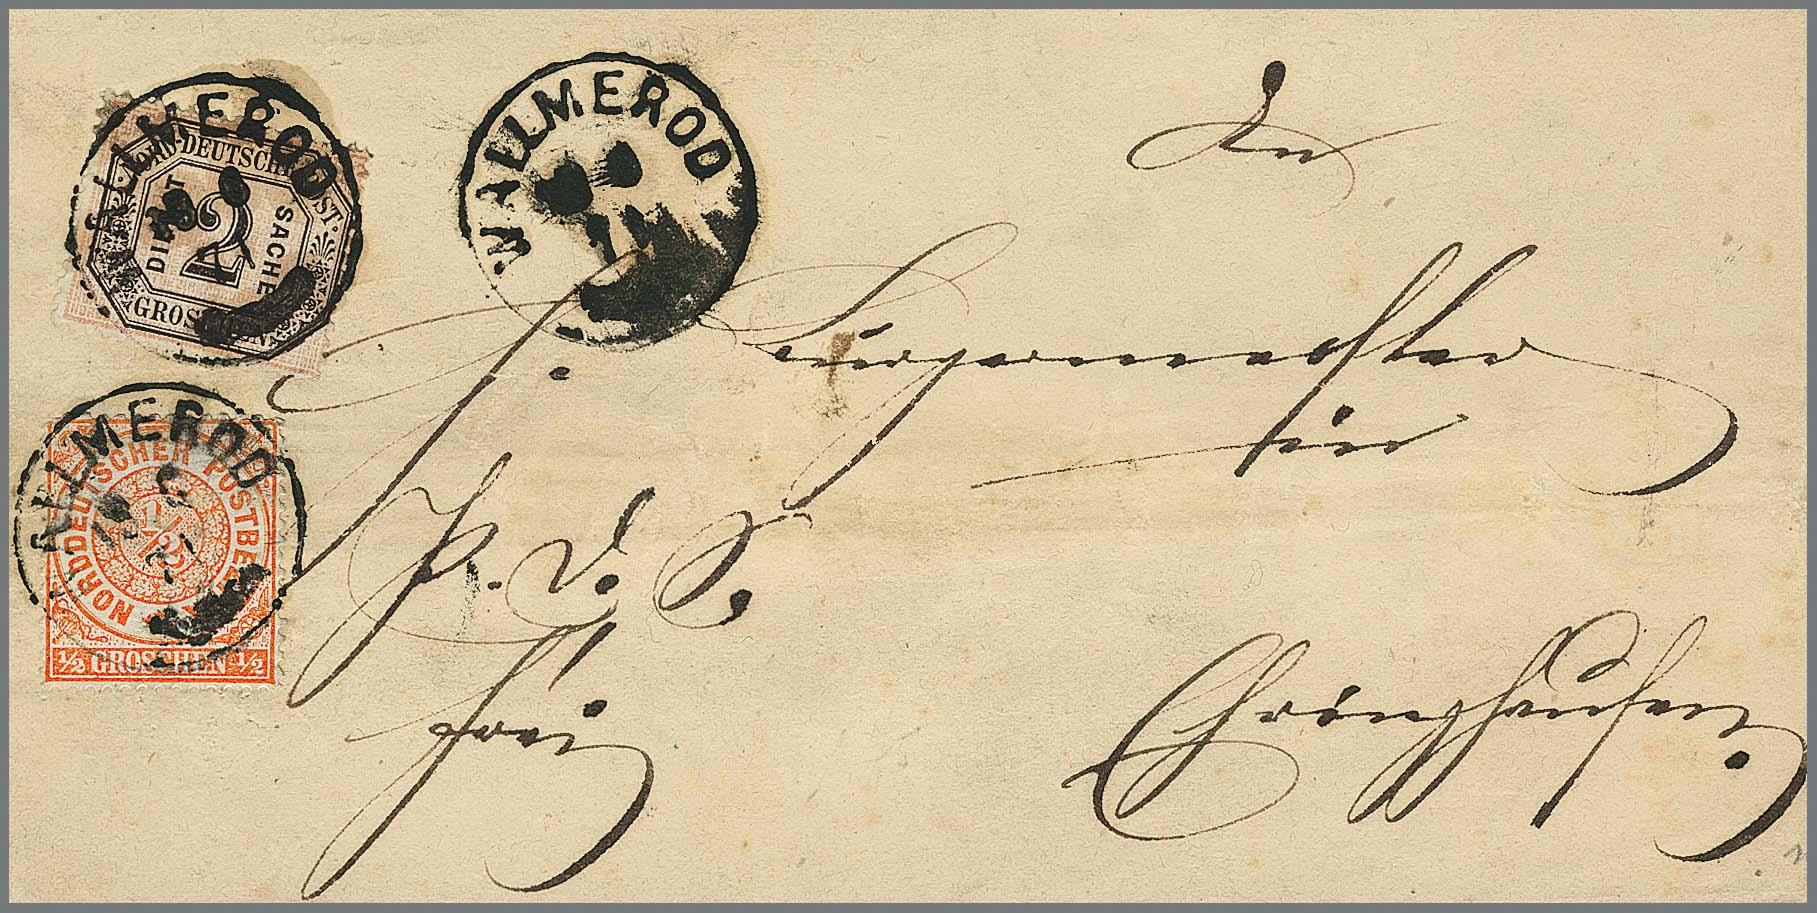 WALLMEROD
NORDDEUTSCHE POST
DIENST SACHE
2
GROSCHEN
WALLMEROD
71
WALLMEROD
NORDDEUTSCHER POSTBEZIRK
1/2
1/2 GROSCHEN 1/2
An
H. Bürgermeister
in
P. d. S.
frei